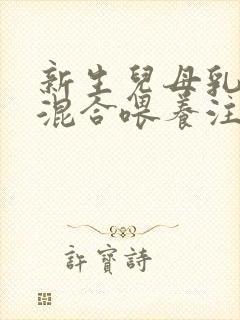 新生兒母乳
混合喂養注
許寶詩